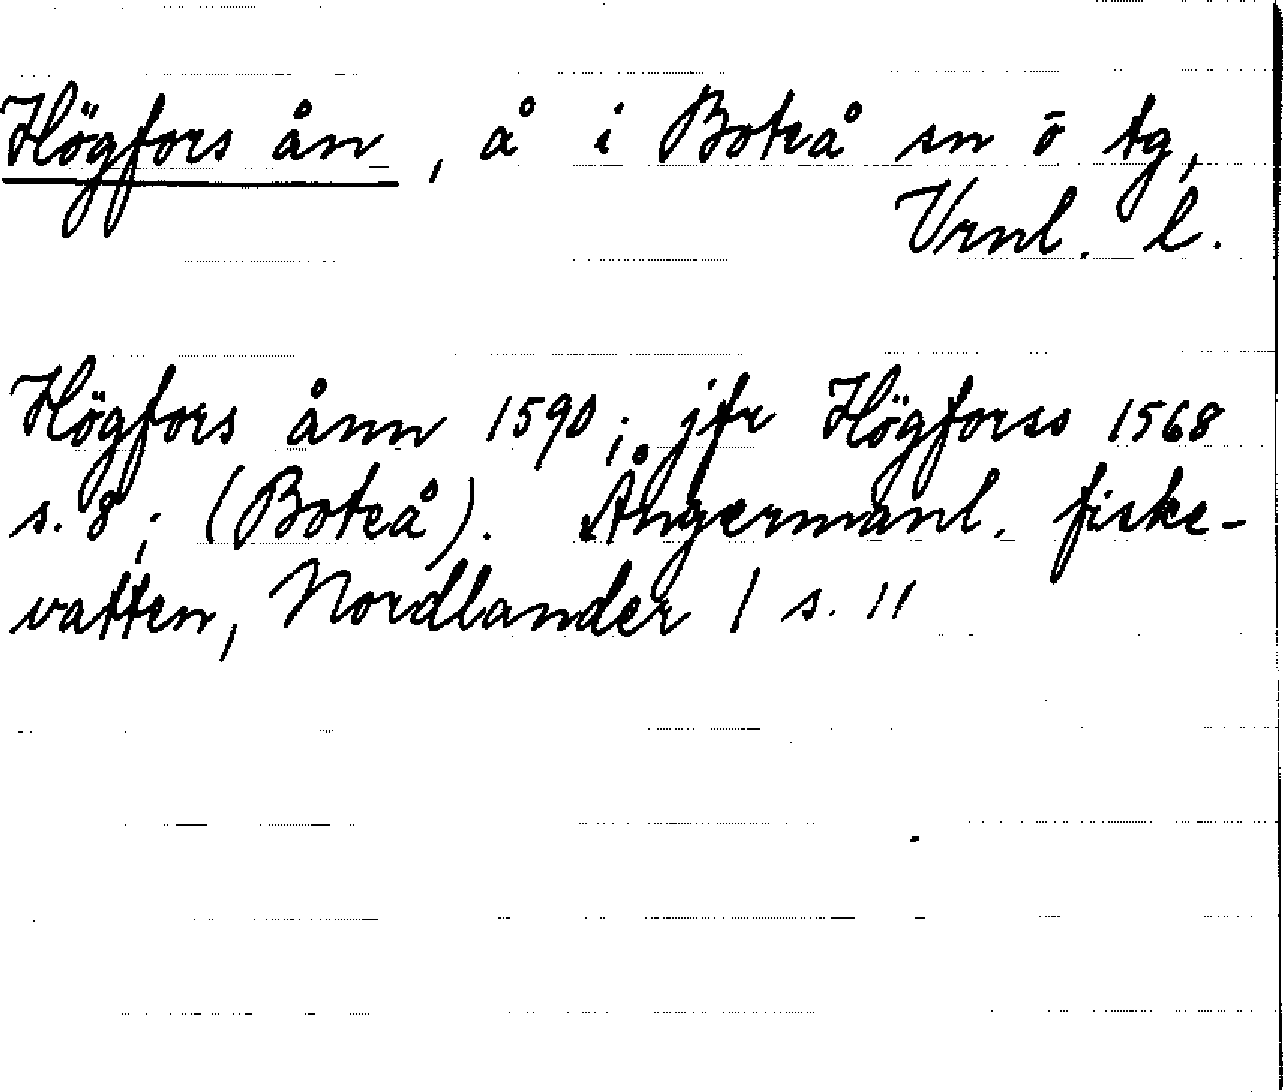 Högfors ån, å i Boteå sn ö tg,
Vrnl. l.
Högfors ånn 1590; jfr Högforss 1568
s. 8; (Boteå). Ångermanl. fiske-
vatten, Nordlander I s. 11